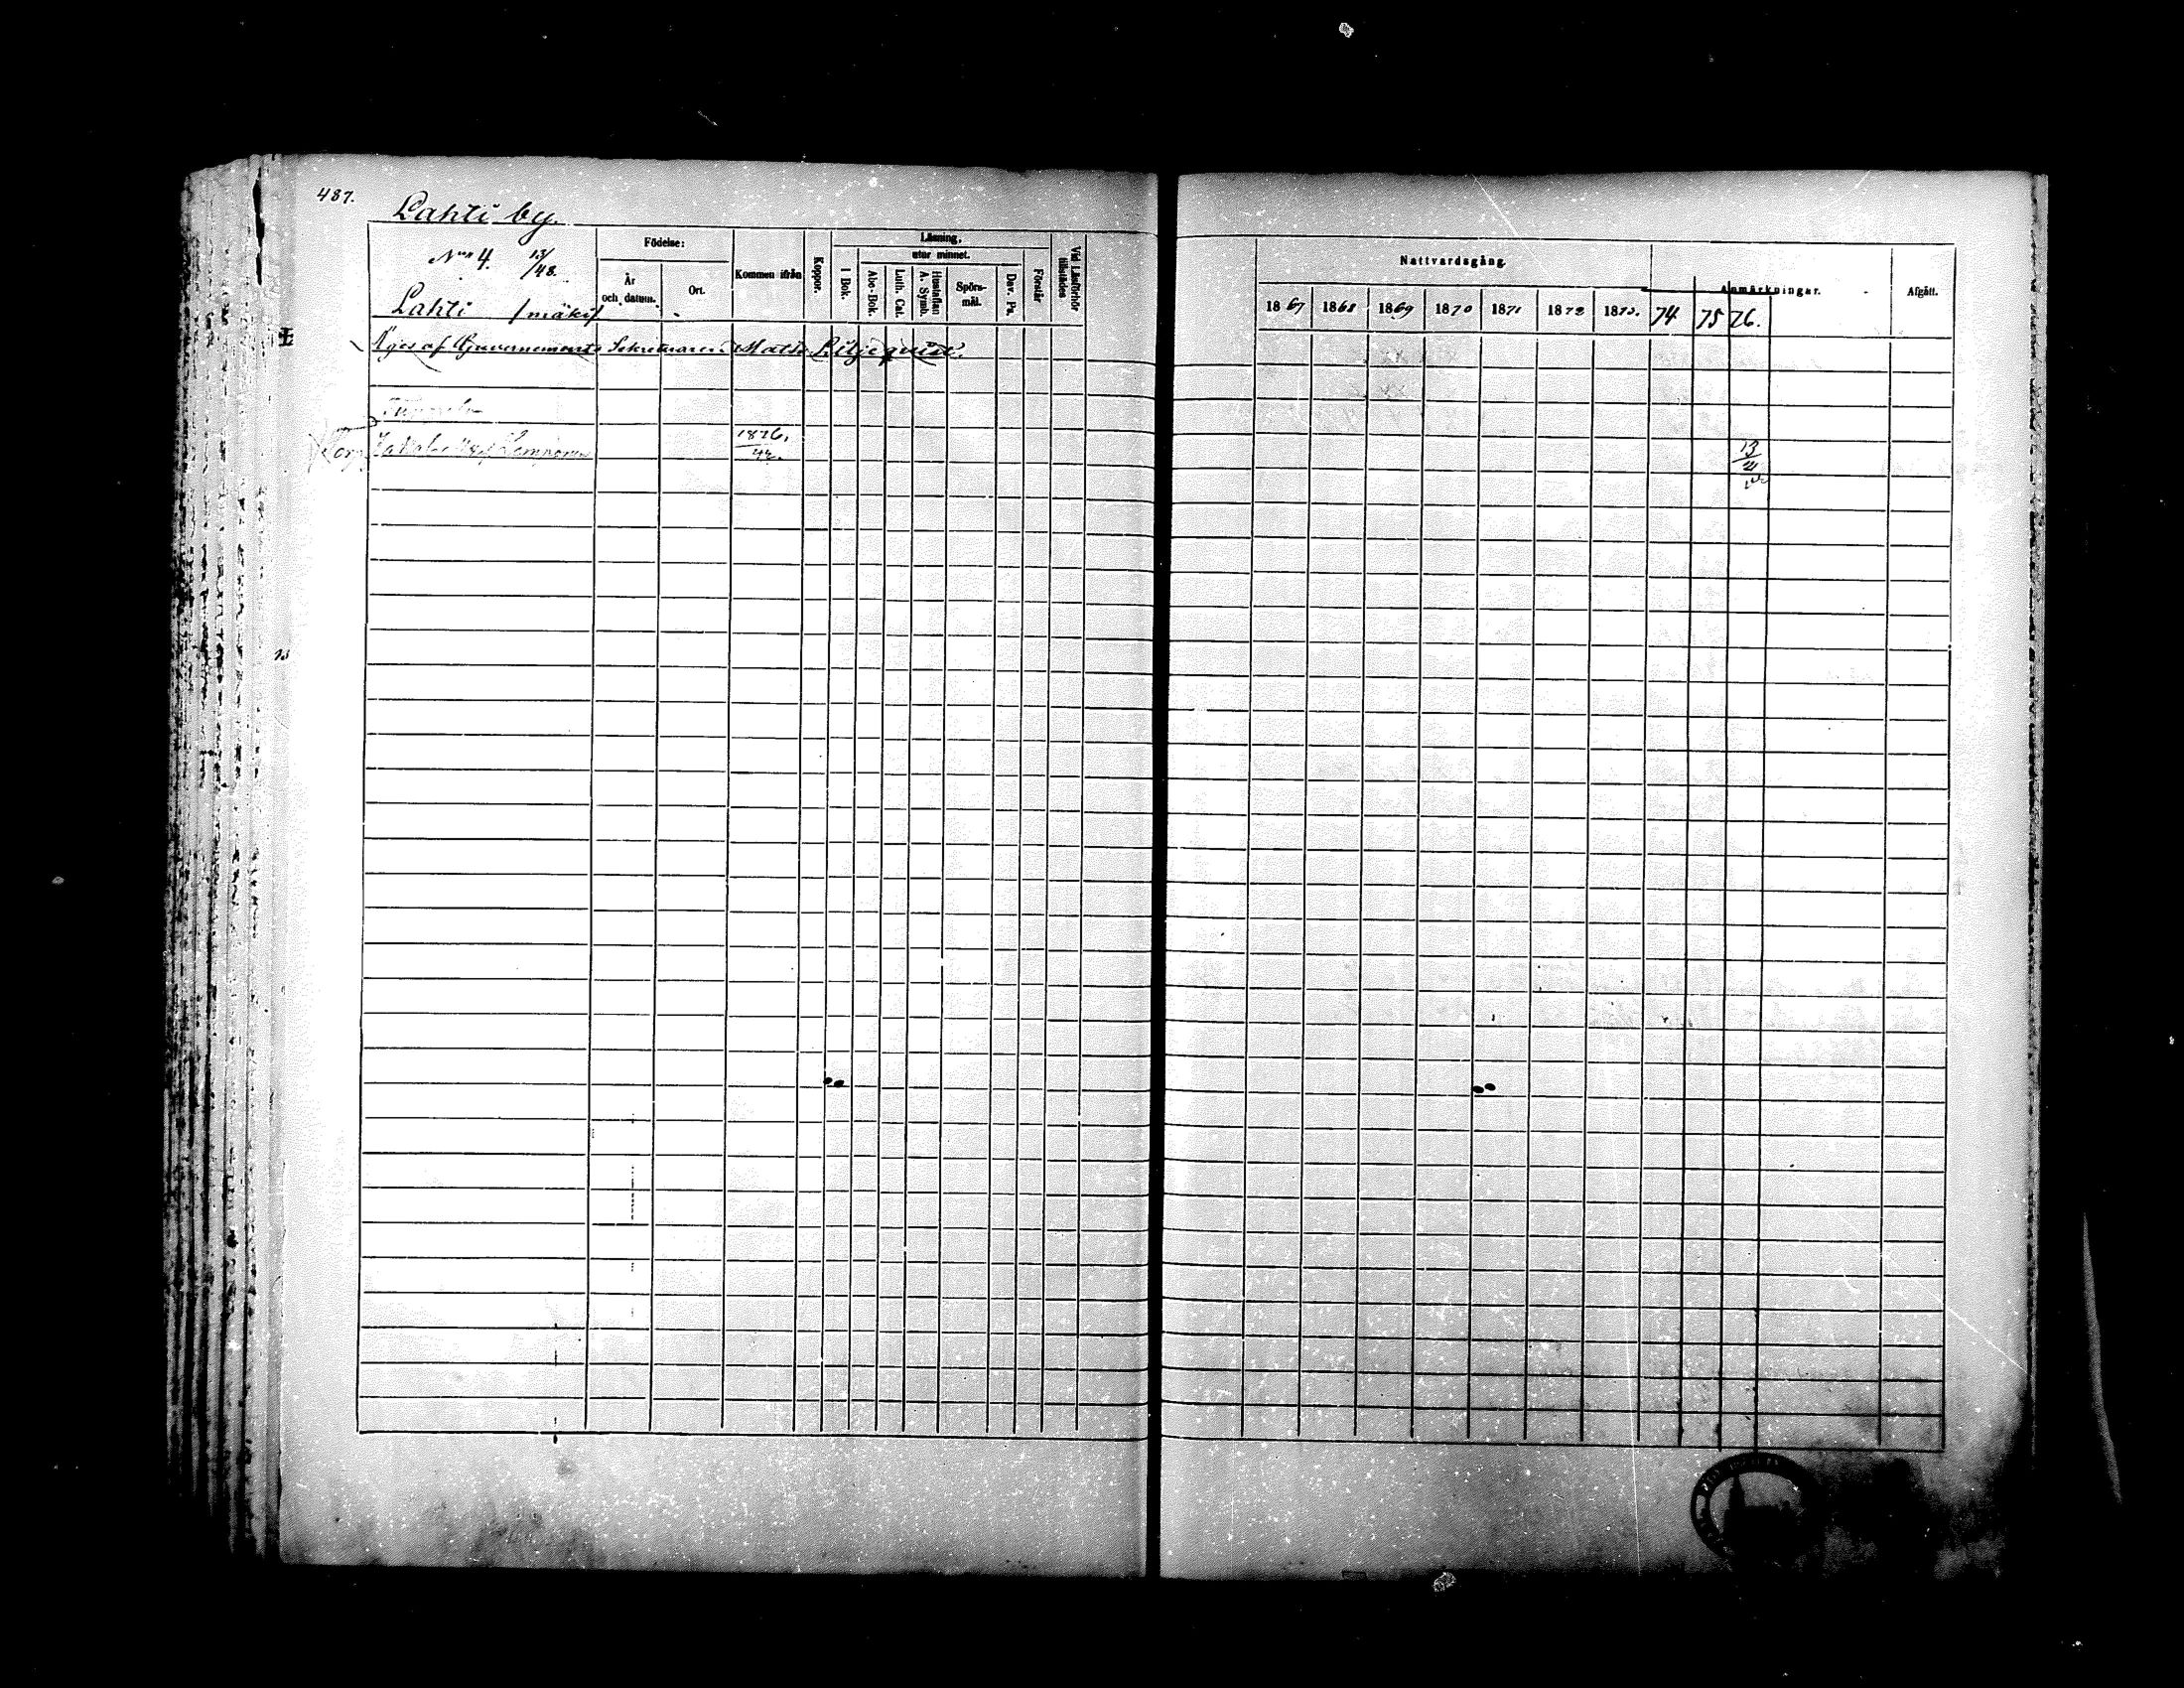 487.
Lahti by.
No 4. 13/48.
Lahti /mäki/
Födelse:
År och datum.
Ort.
Kommen ifrån
Koppor.
Läsning,
I Bok.
utur minnet.
Abc-Bok.
Luth. Cat.
Hustaflan A. Symb.
Spörs-mål.
Dav. Ps.
Förstår
Vid Läsförhör tillstädes
Nattvardsgång.
1867 1868 1869 1870 1871 1872 1873. 74 75 76.
Anmärkningar.
Afgått.
Äges af Guvernements Sekreteraren Matts Liljequist.
1876.
13